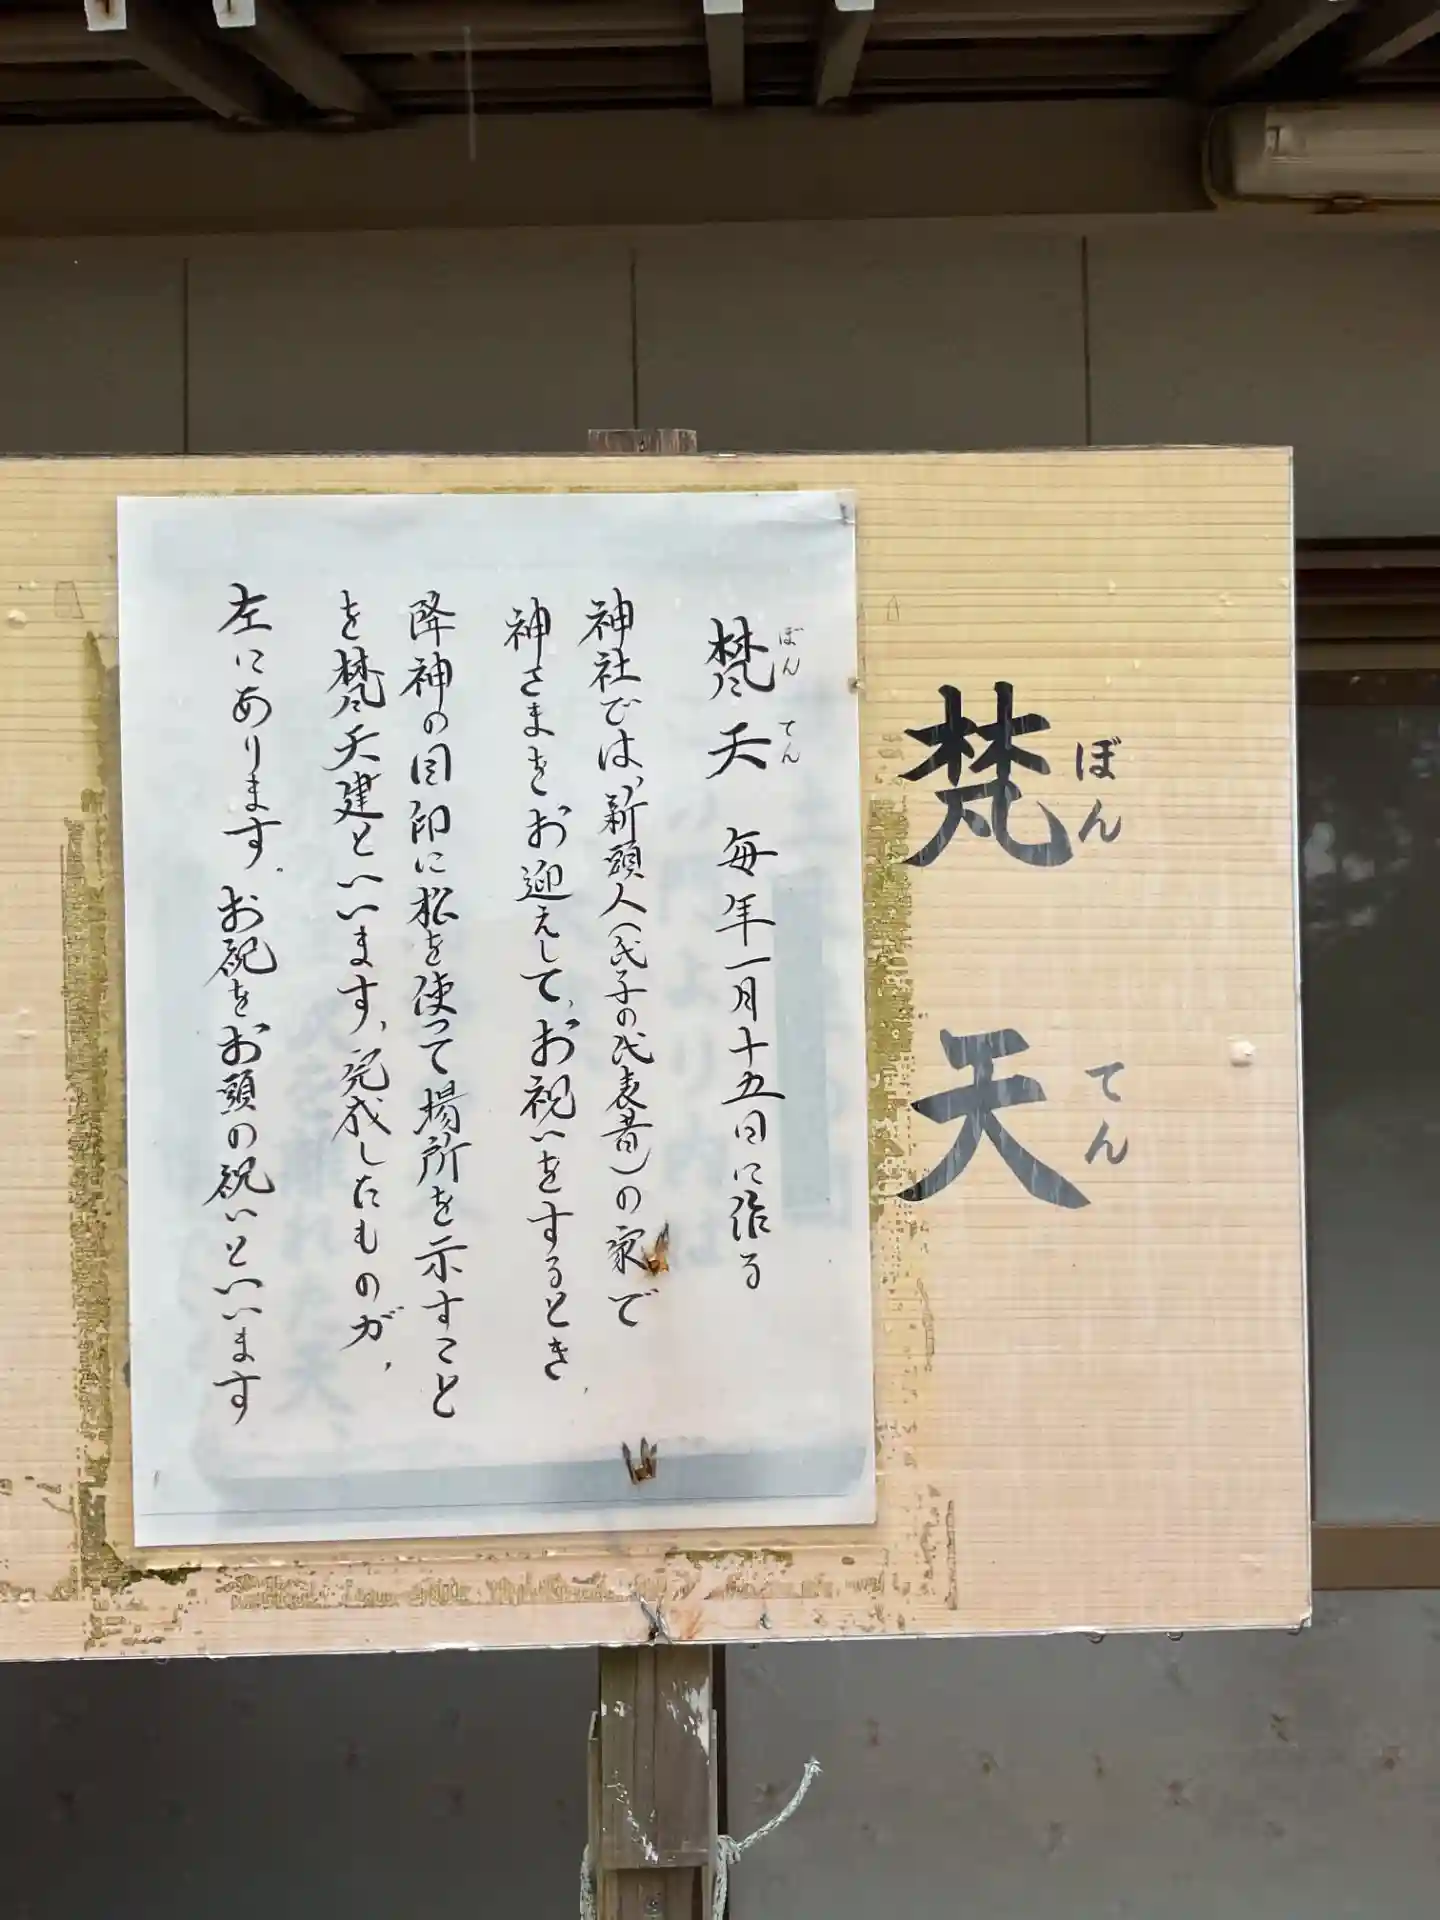 梵天
ぼんてん
梵天 毎年一月十五日に作る
ぼんてん
神社では、新頭人(氏子の代表者)の家で
神さまをお迎えして、お祝いをするとき、
降神の目印に松を使って場所を示すこと
を梵天建といいます、完成したものが、
左にあります。お祝をお頭の祝いといいます